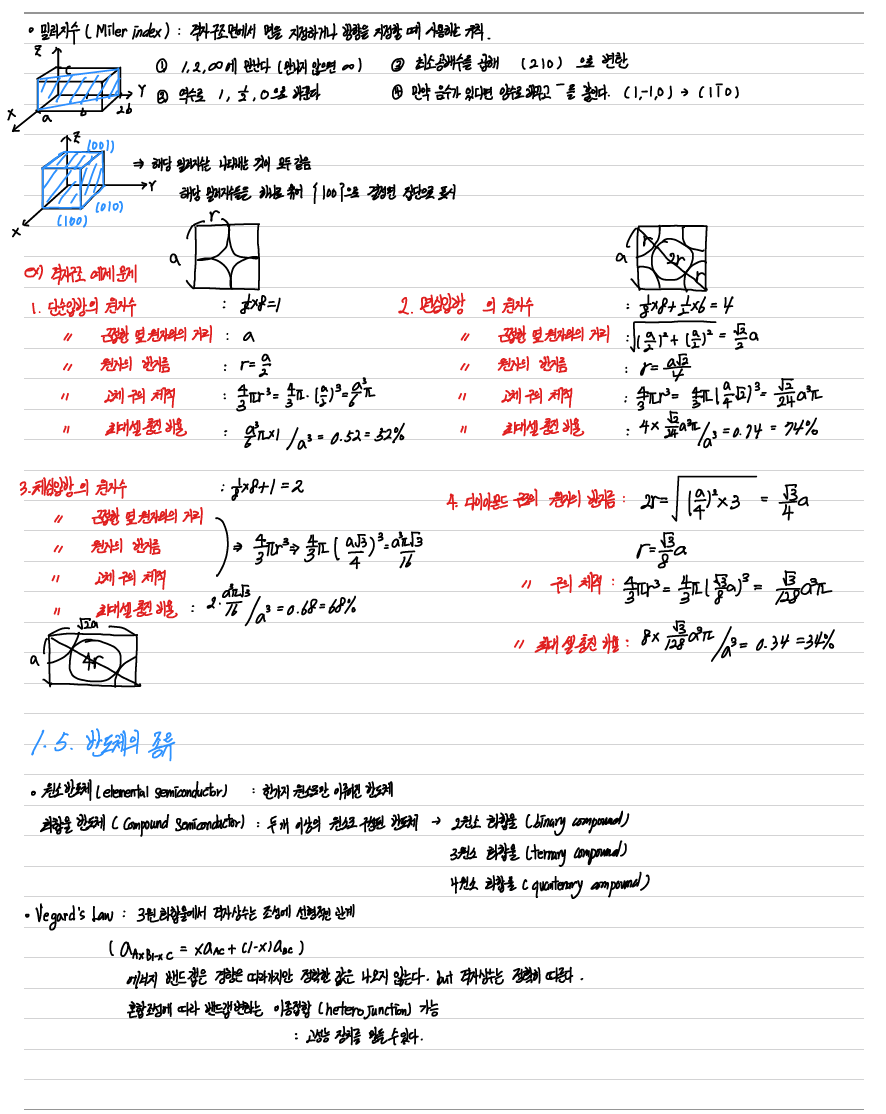 • 밀러지수 ( Miler index ) : 격자구조면에서 면을 지정하거나 방향을 지정할 때 사용하는 규칙.
① 1, 2, ∞에 만난다 (만나지 않으면 ∞) ③ 최소공배수를 곱해 (210) 으로 변환
② 역수로 1, 1/2, 0으로 바꾼다 ④ 만약 음수가 있다면 양수로 바꾸고 ‾ 를 붙인다. (1,-1,0) → (1 1̅ 0)
Z
C
Y
X
a
b
2b
Z
(001)
Y
(010)
(100)
X
⇒ 해당 밀러지수는 나타내는 것이 모두 같음
해당 밀러지수들을 하나로 묶어 {100}으로 결정면 집단으로 표시
r
a
a
r
2r
r
ex) 격자구조 예제문제
1. 단순입방의 원자수 : 1/8×8=1
〃 근접한 옆 원자와의 거리 : a
〃 원자의 반지름 : r = a/2
〃 고체 구의 체적 : 4/3πr³ = 4/3π·(a/2)³ = a³/6 π
〃 최대 셀 충전 비율 : a³/6 π×1 / a³ = 0.52 = 52%
2. 면심입방 의 원자수 : 1/8×8+1/2×6 = 4
〃 근접한 옆 원자와의 거리 : √((a/2)²+(a/2)²) = √2/2 a
〃 원자의 반지름 : r = a√2/4
〃 고체 구의 체적 : 4/3πr³ = 4/3π(a/4 √2)³ = √2/24 a³π
〃 최대 셀 충전 비율 : 4× √2/24 a³π / a³ = 0.74 = 74%
3. 체심입방 의 원자수 : 1/8×8+1 = 2
〃 근접한 옆 원자와의 거리
〃 원자의 반지름 ⇒ 4/3πr³ ⇒ 4/3π(a√3/4)³ = a³π√3/16
〃 고체 구의 체적
〃 최대 셀 충전 비율 : 2· a³π√3/16 / a³ = 0.68 = 68%
√2a
a
4r
4. 다이아몬드 구조의 원자의 반지름 : 2r = √((a/4)²×3) = √3/4 a
r = √3/8 a
〃 구의 체적 : 4/3πr³ = 4/3π(√3/8 a)³ = √3/128 a³π
〃 최대 셀 충전 비율 : 8× √3/128 a³π / a³ = 0.34 = 34%
1.5. 반도체의 종류
• 원소반도체 (elemental semiconductor) : 한가지 원소로만 이루어진 반도체
화합물 반도체 ( Compound Semiconductor) : 두 개 이상의 원소로 구성된 반도체 → 2원소 화합물 (binary compound)
3원소 화합물 (ternary compound)
4원소 화합물 ( quaternary compound)
• Vegard's Law : 3원 화합물에서 격자상수는 조성에 선형적인 관계
( a AxB1-xC = x a AC + (1-x) a BC )
에너지 밴드갭은 경향은 따라가지만 정확한 값은 나오지 않는다. but 격자상수는 정확히 따른다.
혼합조성에 따라 밴드갭 변하는 이종접합 (hetero junction) 가능
: 고성능 장치를 만들 수 있다.